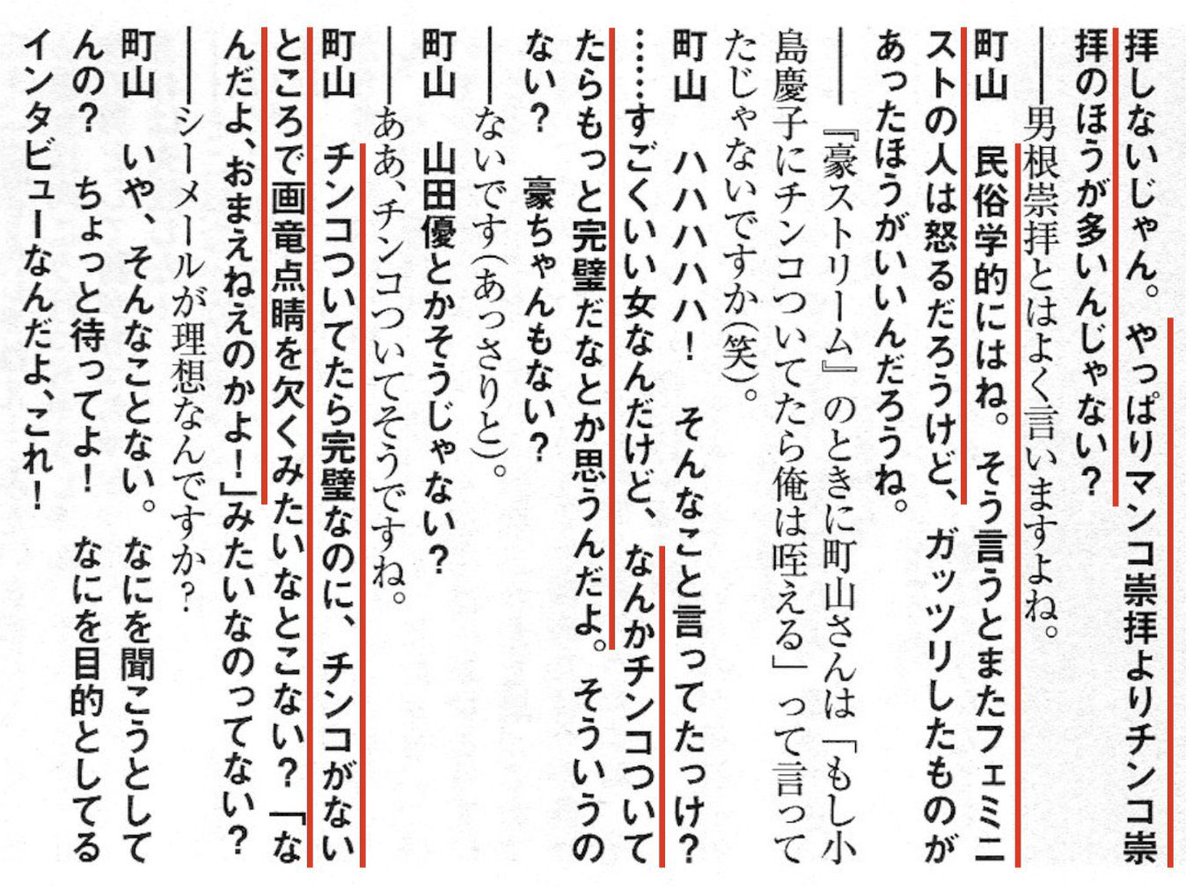 拝しないじゃん。やっぱりマンコ崇拝よりチンコ崇
拝のほうが多いんじゃない？
――男根崇拝とはよく言いますよね。
町山　民俗学的にはね。そう言うとまたフェミニ
ストの人は怒るだろうけど、ガッツリしたものが
あったほうがいいんだろうね。
――『豪ストリーム』のときに町山さんは「もし小
島慶子にチンコついてたら俺は咥える」って言って
たじゃないですか（笑）。
町山　ハハハハハ！　そんなこと言ってたっけ？
……すごくいい女なんだけど、なんかチンコついて
たらもっと完璧だなとか思うんだよ。そういうの
ない？　豪ちゃんもない？
――ないです（あっさりと）。
町山　山田優とかそうじゃない？
――ああ、チンコついてそうですね。
町山　チンコついてたら完璧なのに、チンコがない
ところで画竜点睛を欠くみたいなとこない？「な
んだよ、おまえねえのかよ！」みたいなのってない？
――シーメールが理想なんですか？
町山　いや、そんなことない。なにを聞こうとして
んの？　ちょっと待ってよ！　なにを目的としてる
インタビューなんだよ、これ！